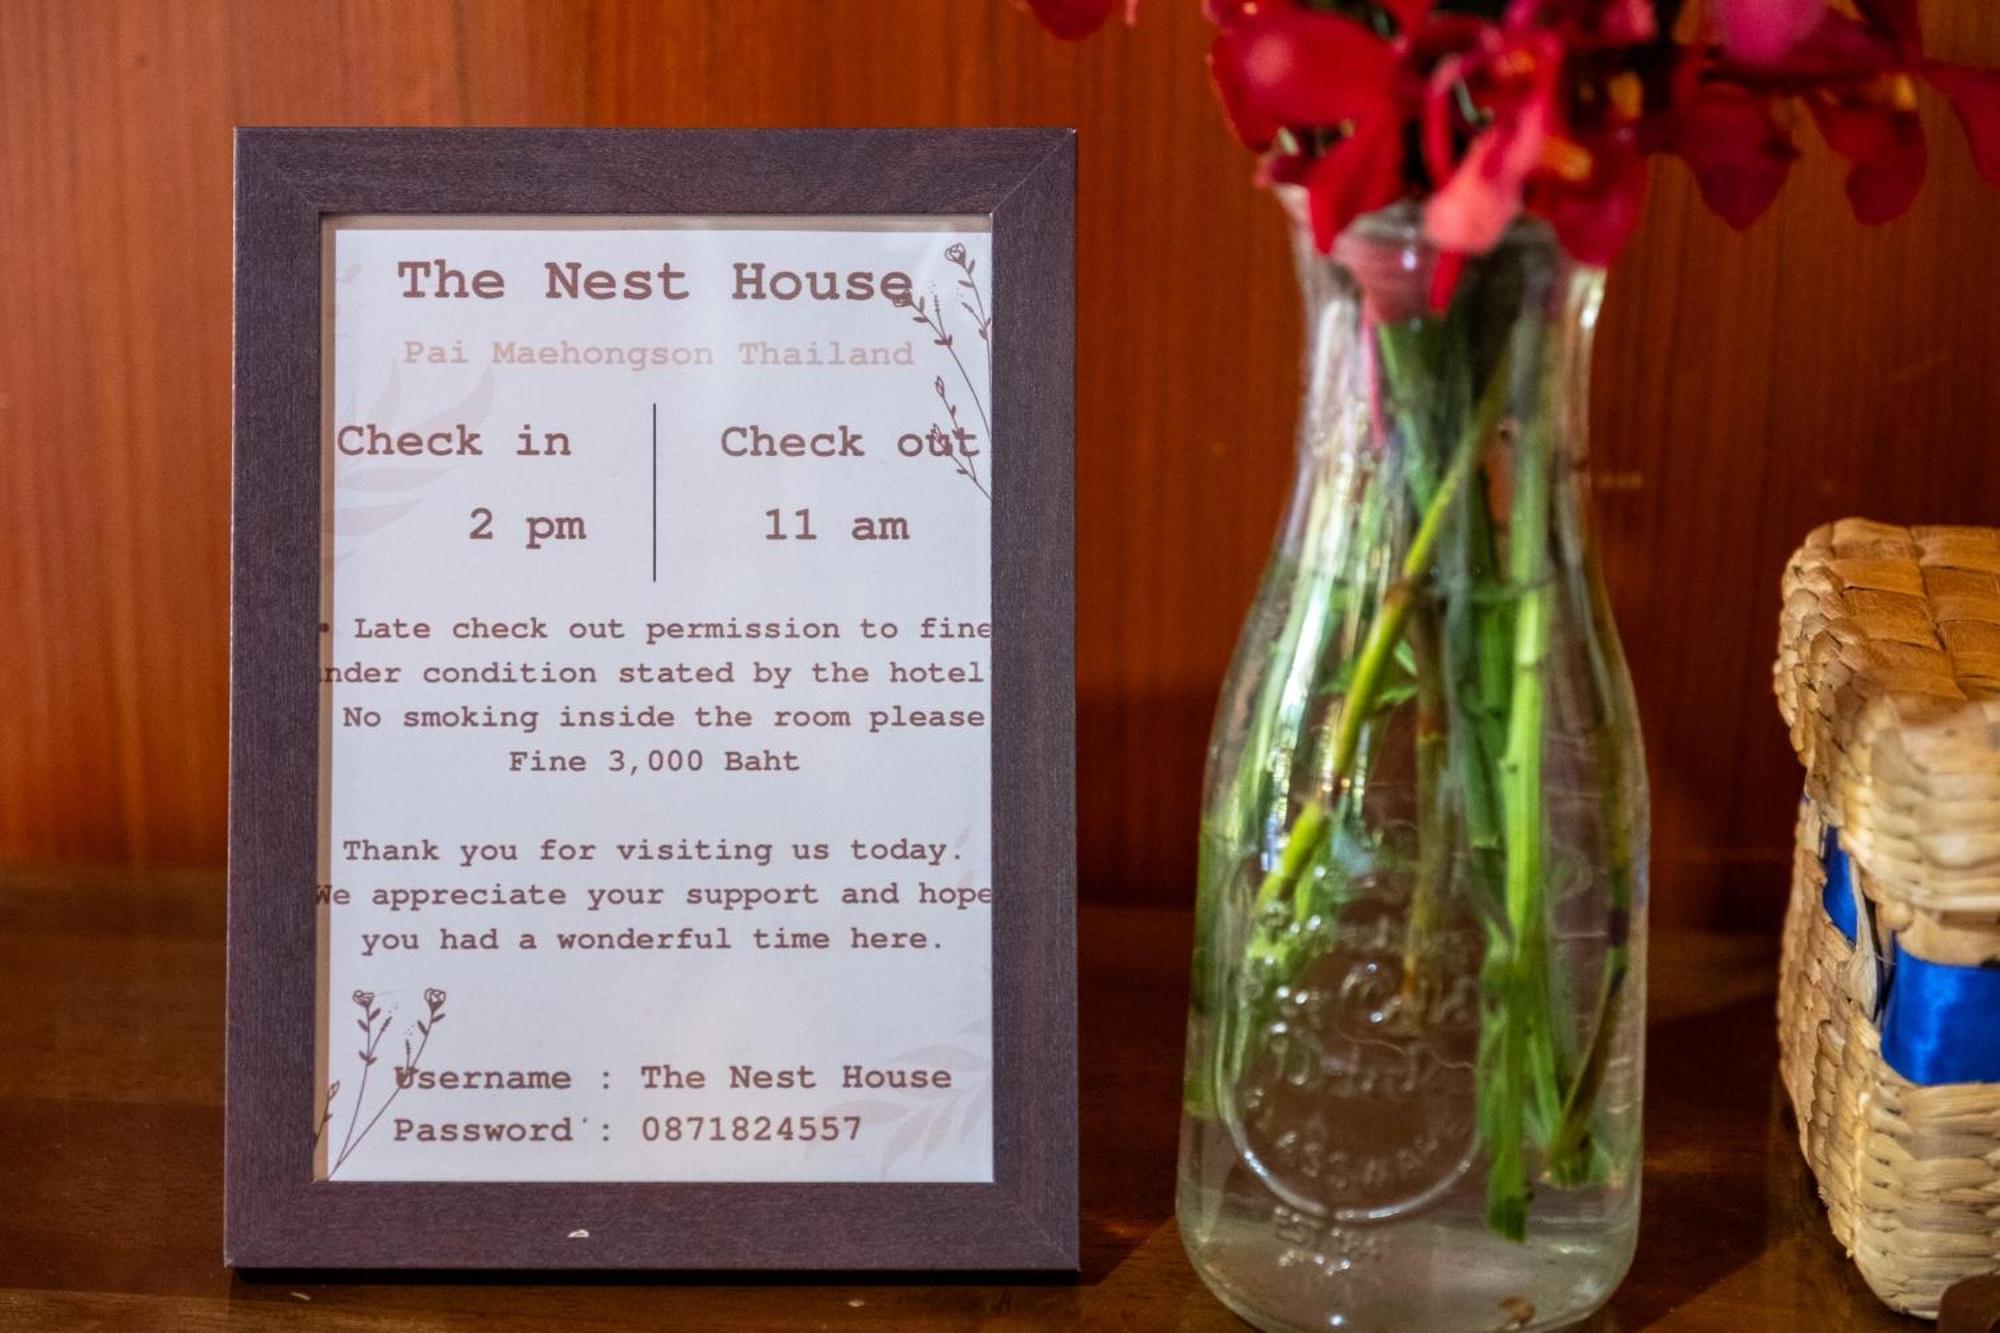 The Nest House
Pai Maehongson Thailand
Check in Check out
2 pm 11 am
• Late check out permission to fine
nder condition stated by the hotel
No smoking inside the room please
Fine 3,000 Baht
Thank you for visiting us today.
We appreciate your support and hope
you had a wonderful time here.
Username : The Nest House
Password : 0871824557